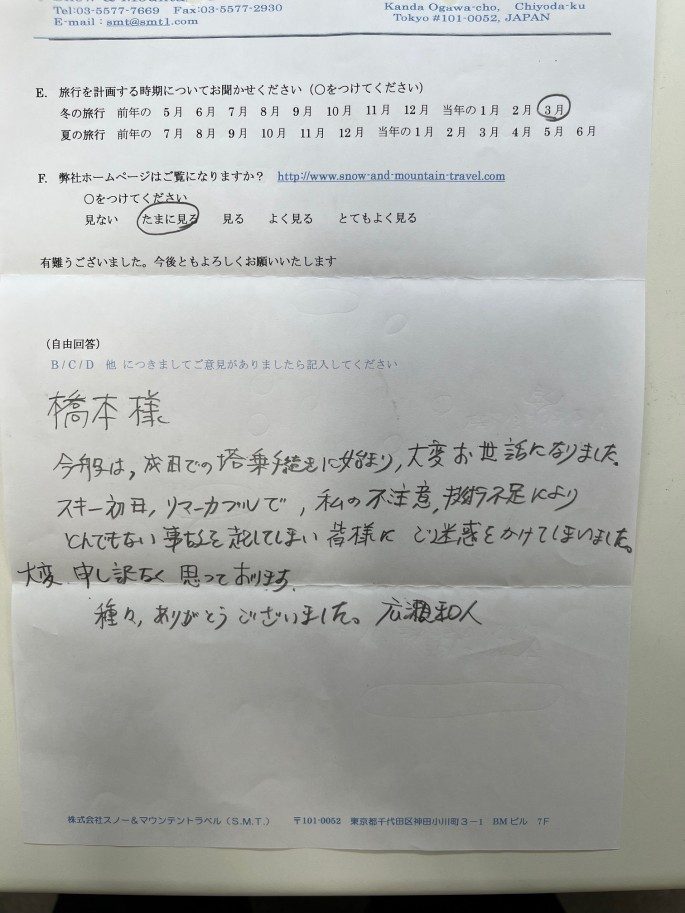 Tel:03-5577-7669 Fax:03-5577-2930
E-mail : smt@smt1.com
Kanda Ogawa-cho, Chiyoda-ku
Tokyo #101-0052, JAPAN
E. 旅行を計画する時期についてお聞かせください（○をつけてください）
冬の旅行 前年の 5月 6月 7月 8月 9月 10月 11月 12月 当年の1月 2月 3月
夏の旅行 前年の 7月 8月 9月 10月 11月 12月 当年の1月 2月 3月 4月 5月 6月
F. 弊社ホームページはご覧になりますか？ http://www.snow-and-mountain-travel.com
○をつけてください
見ない たまに見る 見る よく見る とてもよく見る
有難うございました。今後ともよろしくお願いいたします
（自由回答）
B/C/D 他 につきましてご意見がありましたら記入してください
橋本様
は, 成田での搭乗手続きに始まり, 大変お世話になりました。
スキー初日, リマーカブルで, 私の不注意, 不足により
とんでもない事故を起してしまい皆様にご迷惑をかけてしまいました。
大変申し訳なく思っております。
種々, ありがとうございました。 広瀬和人
株式会社スノー&マウンテントラベル（S.M.T.） 〒101-0052 東京都千代田区神田小川町3-1 BMビル 7F